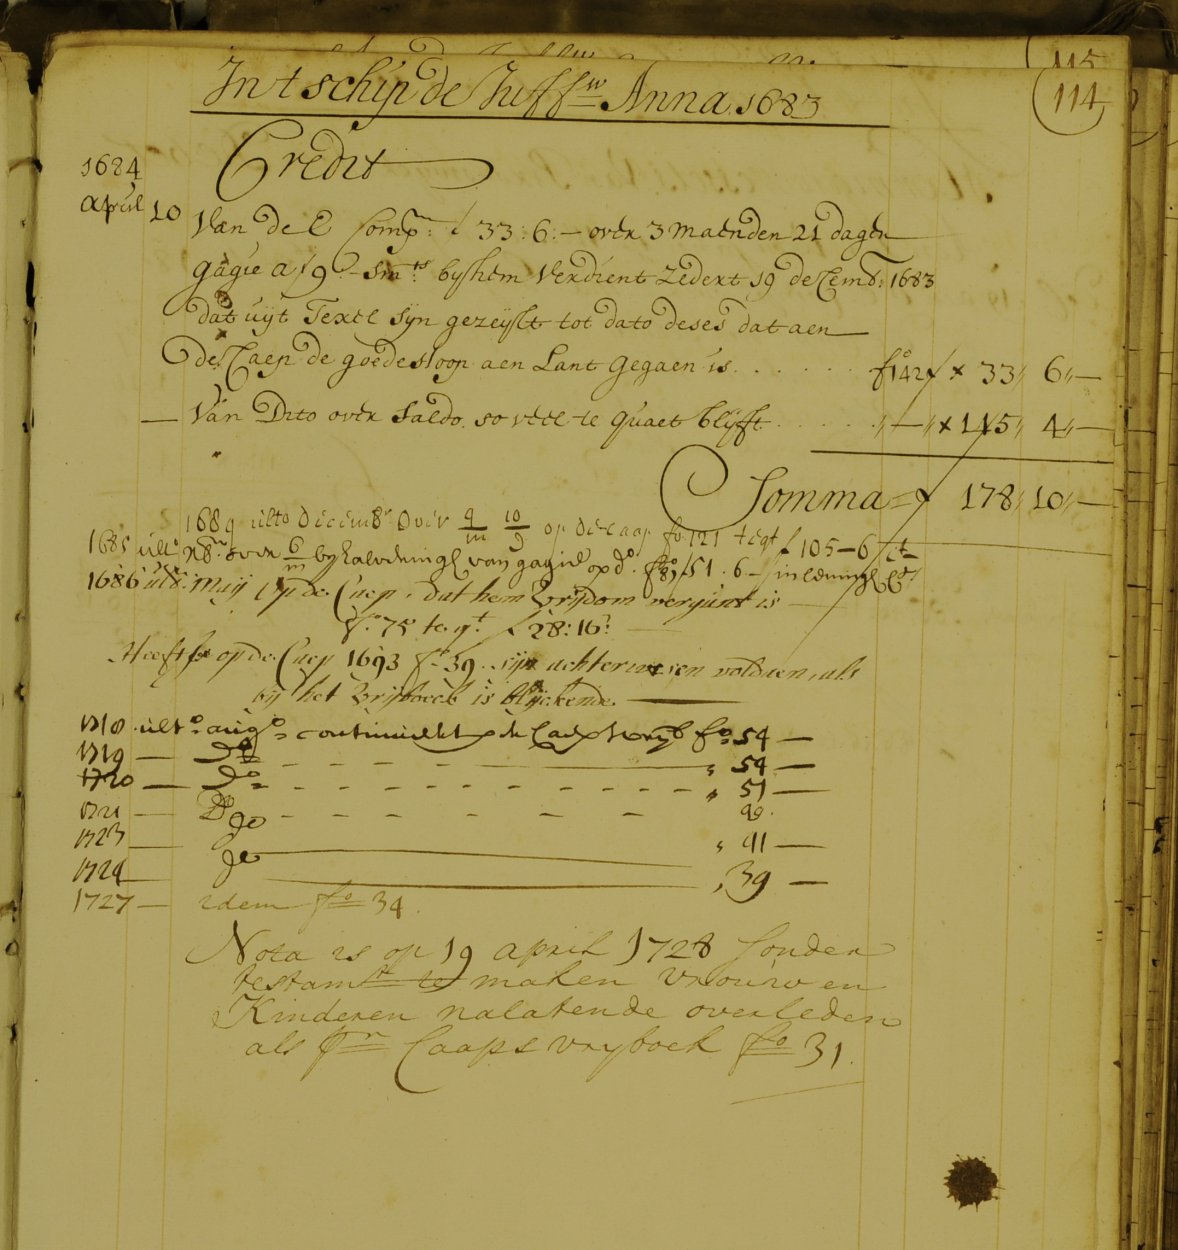 115
114
In't schip de Juffw Anna. 1683
Credit
1684
april 10 Van de E Compn: ƒ 33:6:— over 3 maenden 21 dagen
gagie a ƒ 9:— smts by hem verdient zedert 19 decemb: 1683
dat uyt Texel syn gezeylt tot dato deses dat aen
de Caep de goede hoop aen Lant gegaen is . . . . . . fo 142 ƒ 33,, 6,,—
— Van Dito over Saldo, so veel te quaet blyft . . . . ,,—,, 145,, 4,,—
Somma = ƒ 178,, 10,,—
1684 ulto Decemb:r Over 9/m 10/9 op de Caap fo: 121 tegt ƒ 105—6
1685 ulto x8:r over 6/m by van gagie op do. fo 87 ƒ 51.6—
1686 ulto. Maij op de Caep, dat hem vrijdom vergunt is —
fo 75 te.g.t ƒ 28:16:
Heeft op de Caep 1693 fo 39. sijn achterwesen voldaen, als
bij het vrijboeck is blijckende. —
1718 ulto augo continueert p de Caeps vryb fo 54 —
1719 — Do — — — — ,, 54 —
1720 — Do — — — — ,, 51 —
1721 — Do — — — — 49.
1723 — do ,, 41 —
1724 — do ,, 39 —
1727 — idem fo 34.
Nota is op 19 april 1728 sonder
testamt te maken vrouw en
Kinderen nalatende overleden
als pr Caaps vryboek fo 31.